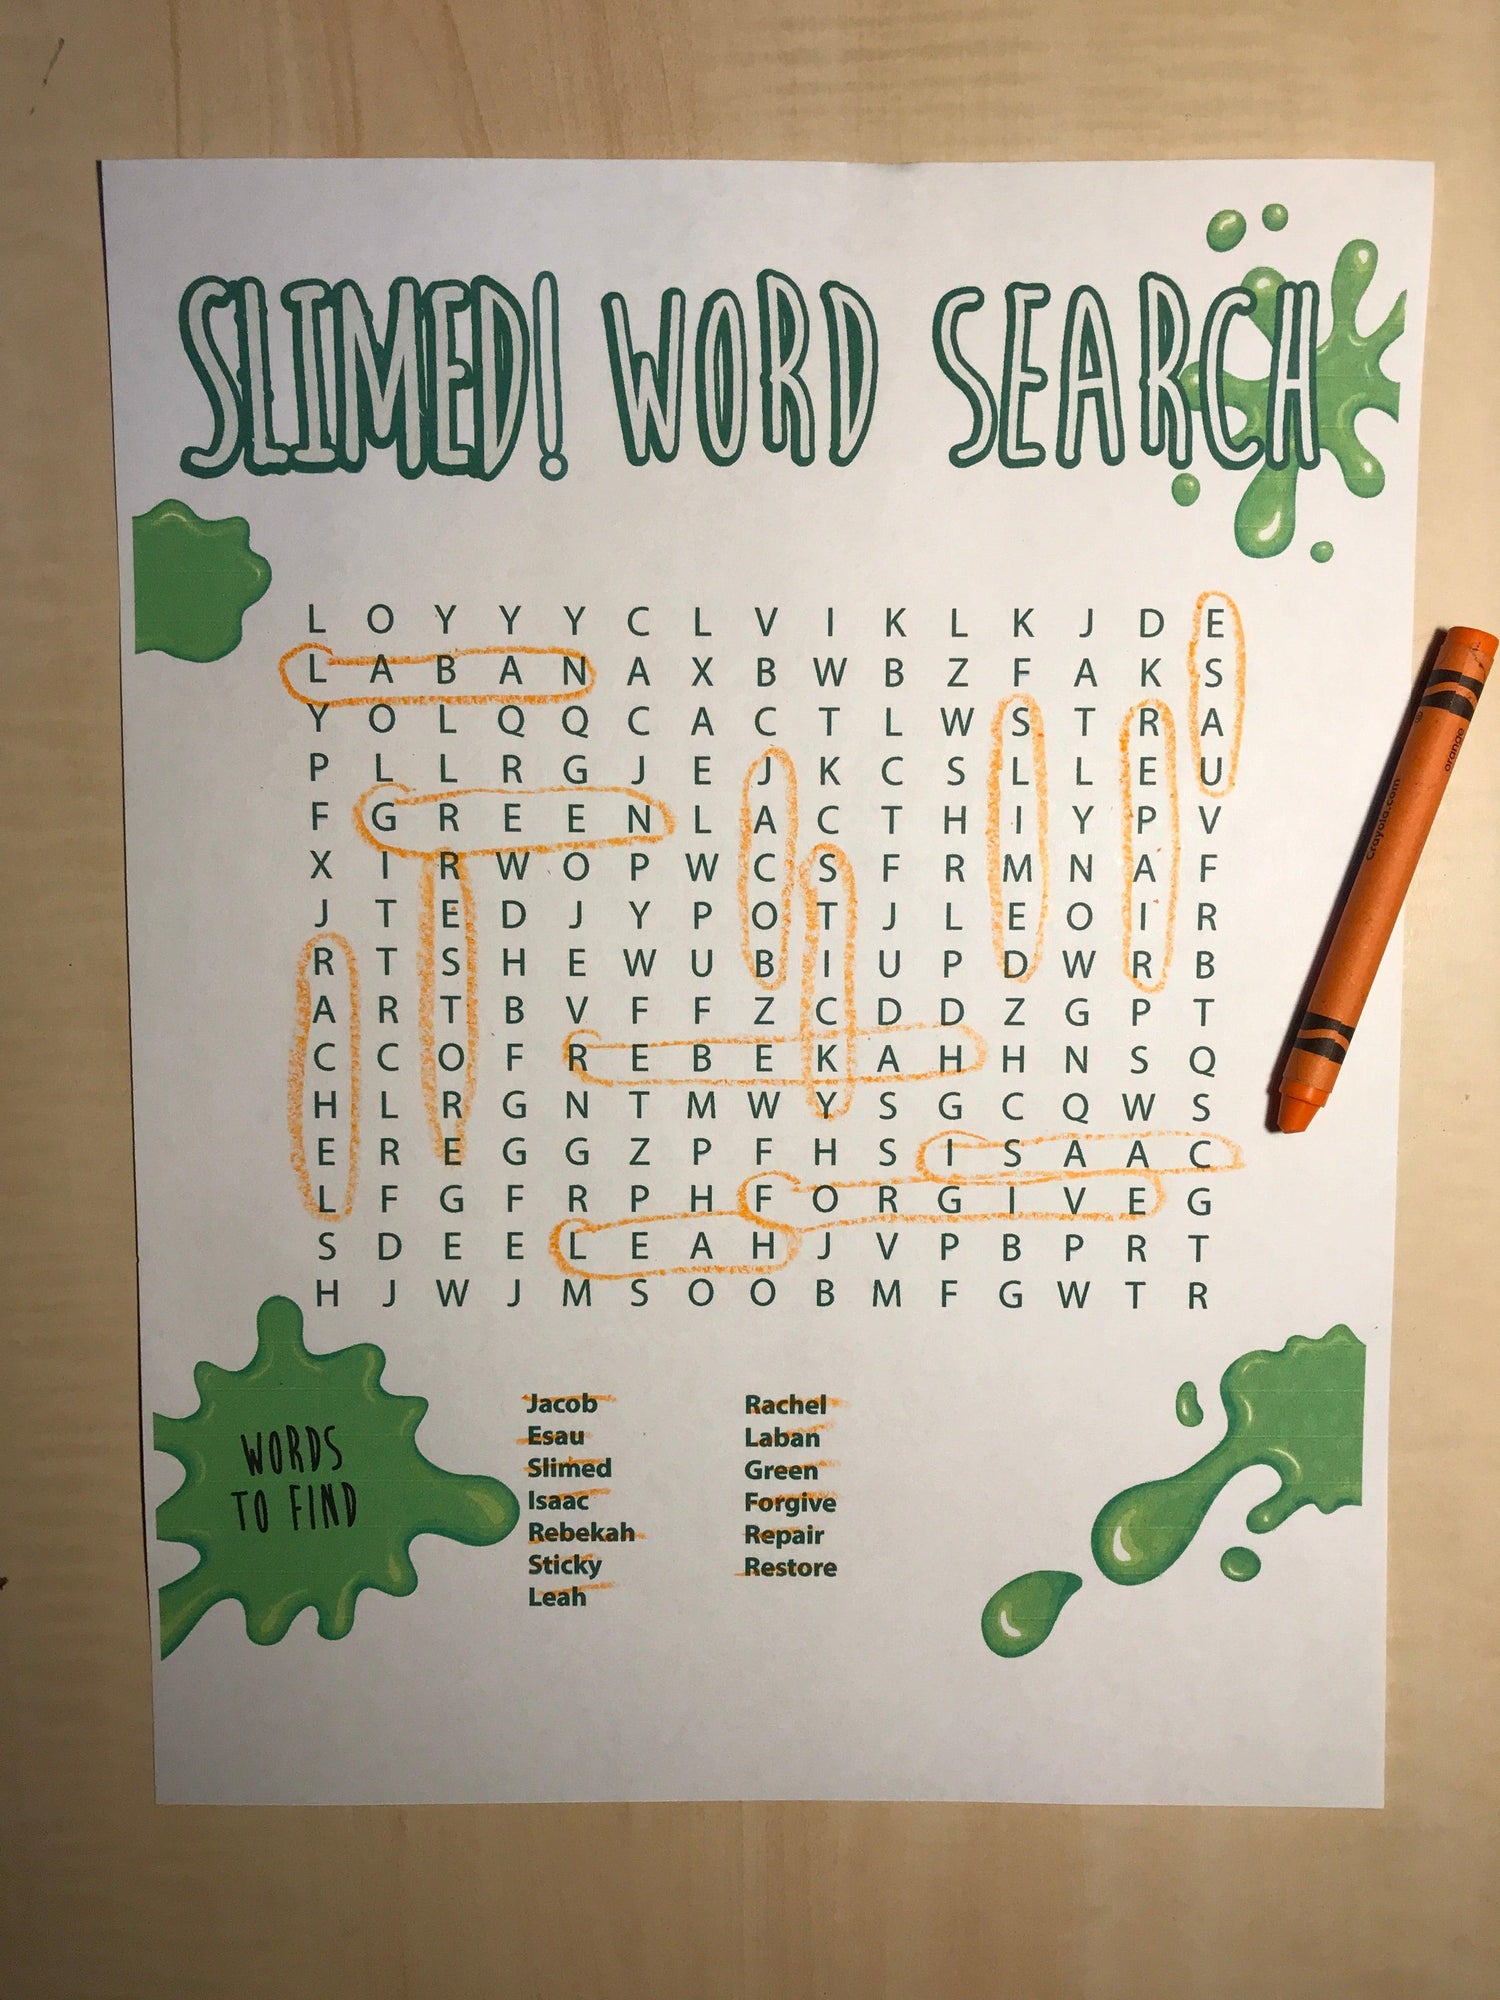 SLIMED! WORD SEARCH
L O Y Y Y C L V I K L K J D E
L A B A N A X B W B Z F A K S
Y O L Q Q C A C T L W S T R A
P L L R G J E J K C S L L E U
F G R E E N L A C T H I Y P V
X I R W O P W C S F R M N A F
J T E D J Y P O T J L E O I R
R T S H E W U B I U P D W R B
A R T B V F F Z C D D Z G P T
C C O F R E B E K A H H N S Q
H L R G N T M W Y S G C Q W S
E R E G G Z P F H S I S A A C
L F G F R P H F O R G I V E G
S D E E L E A H J V P B P R T
H J W J M S O O B M F G W T R
WORDS
TO FIND
Jacob
Esau
Slimed
Isaac
Rebekah
Sticky
Leah
Rachel
Laban
Green
Forgive
Repair
Restore
orange
Crayola.com